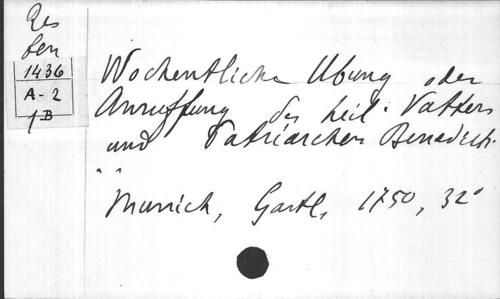 Res
ben
1436
A-2
1B
Wochentliche Ubung oder
Anruffung des heil. Vatters
und Patriarchen Benedict.
"
Munich, Gartl, 1750, 32°